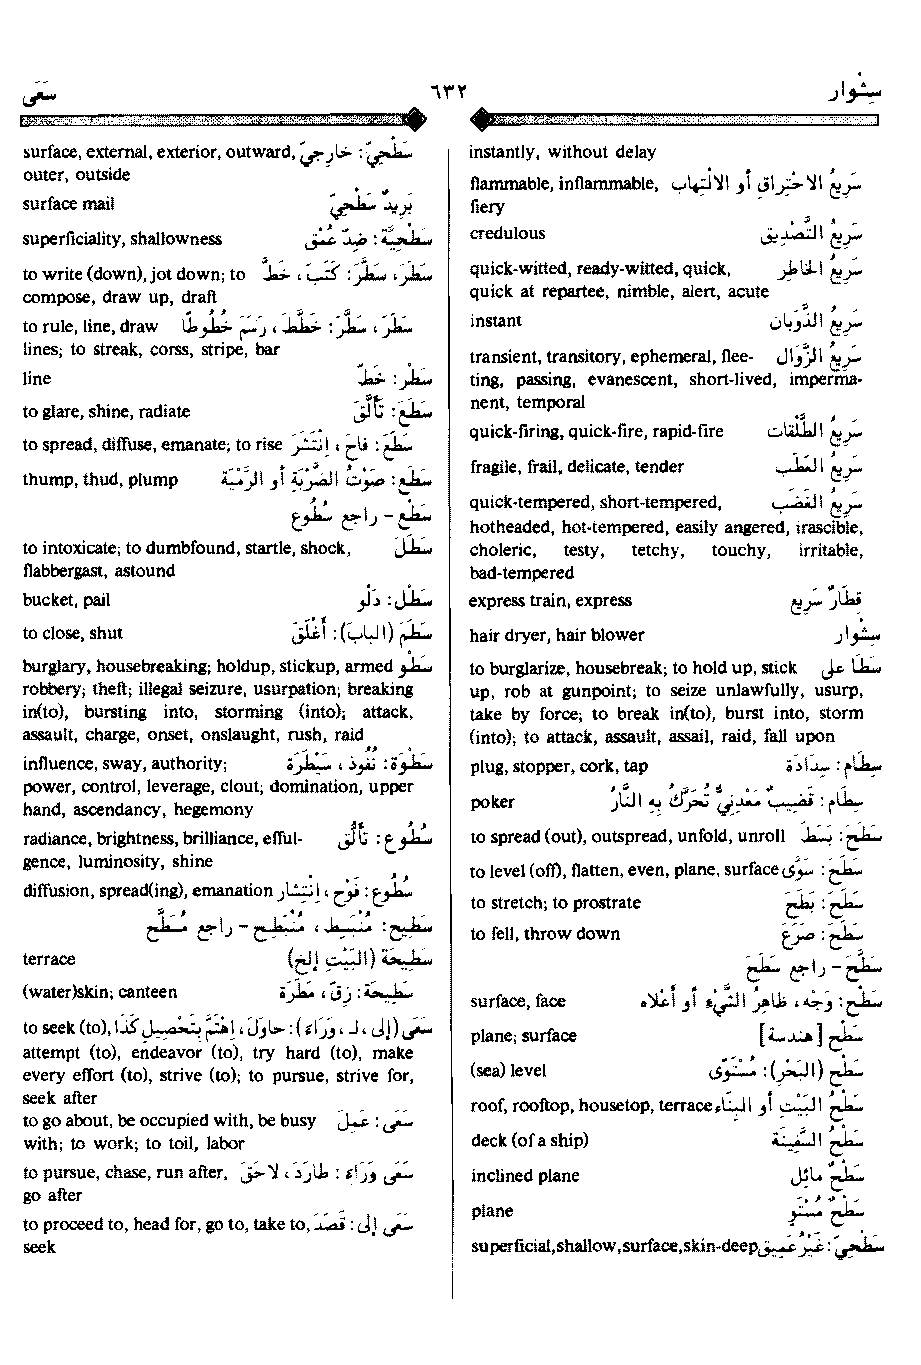 سشوار
٦٣٢
سَعَى
instantly, without delay
flammable, inflammable, سَرِيعُ الاحْتِرَاقِ أو الالْتِهَابِ
fiery
credulous سَرِيعُ التَّصْدِيقِ
quick-witted, ready-witted, quick, سَرِيعُ الخَاطِرِ
quick at repartee, nimble, alert, acute
instant سَرِيعُ الذَّوَبَان
transient, transitory, ephemeral, flee- سَرِيعُ الزَّوَال
ting, passing, evanescent, short-lived, imperma-
nent, temporal
quick-firing, quick-fire, rapid-fire سَرِيعُ الطَّلَقَات
fragile, frail, delicate, tender سَرِيعُ العَطَب
quick-tempered, short-tempered, سَرِيعُ الغَضَب
hotheaded, hot-tempered, easily angered, irascible,
choleric, testy, tetchy, touchy, irritable,
bad-tempered
express train, express قِطَارٌ سَرِيع
hair dryer, hair blower سِشْوار
to burglarize, housebreak; to hold up, stick سَطَا على
up, rob at gunpoint; to seize unlawfully, usurp,
take by force; to break in(to), burst into, storm
(into); to attack, assault, assail, raid, fall upon
plug, stopper, cork, tap سِطَام: سِدَادَة
poker سِطَام: قَضِيبٌ مَعْدِنِيٌّ تُحَرَّكُ بِهِ النَّارُ
to spread (out), outspread, unfold, unroll سَطَحَ: بَسَطَ
to level (off), flatten, even, plane, surface سَطَحَ: سَوَّى
to stretch; to prostrate سَطَحَ: بَطَحَ
to fell, throw down سَطَحَ: صَرَعَ
سَطَّحَ - راجع سَطَحَ
surface, face سَطْح: وَجْه، ظَاهِرُ الشَّيْءِ أو أَعْلاه
plane; surface سَطْح [هندسة]
(sea) level سَطْح (البَحْرِ): مُسْتَوًى
roof, rooftop, housetop, terrace سَطْحُ البَيْتِ أو البِنَاء
deck (of a ship) سَطْحُ السَّفِينَة
inclined plane سَطْحٌ مائِل
plane سَطْحٌ مُسْتَوٍ
superficial, shallow, surface, skin-deep سَطْحِيّ: غَيْرُ عَمِيق
surface, external, exterior, outward, سَطْحِيّ: خارجيّ
outer, outside
surface mail بَرِيدٌ سَطْحِيّ
superficiality, shallowness سَطْحِيَّة: ضِدّ عُمْق
to write (down), jot down; to سَطَرَ، سَطَّرَ: كَتَبَ، خَطَّ
compose, draw up, draft
to rule, line, draw سَطَرَ، سَطَّرَ: خَطَّطَ، رَسَمَ خُطُوطًا
lines; to streak, corss, stripe, bar
line سَطْر: خَطّ
to glare, shine, radiate سَطَعَ: تَأَلَّقَ
to spread, diffuse, emanate; to rise سَطَعَ: فَاحَ، اِنْتَشَرَ
thump, thud, plump سَطْع: صَوْتُ الضَّرْبَةِ أو الرَّمْيَة
سَطْع - راجع سُطُوع
to intoxicate; to dumbfound, startle, shock, سَطَلَ
flabbergast, astound
bucket, pail سَطْل: دَلْو
to close, shut سَطَمَ (البابَ): أَغْلَقَ
burglary, housebreaking; holdup, stickup, armed سَطْو
robbery; theft; illegal seizure, usurpation; breaking
in(to), bursting into, storming (into); attack,
assault, charge, onset, onslaught, rush, raid
influence, sway, authority; سَطْوَة: نُفُوذ، سَيْطَرَة
power, control, leverage, clout; domination, upper
hand, ascendancy, hegemony
radiance, brightness, brilliance, efful- سُطُوع: تَأَلُّق
gence, luminosity, shine
diffusion, spread(ing), emanation سُطُوع: فَوْح، اِنْتِشَار
سَطِيح: مُنْبَسِط، مُنْبَطِح - راجع مُسَطَّح
terrace سَطِيحَة (البَيْتِ إلخ)
(water)skin; canteen سَطِيحَة: زِقّ، مَطَرَة
to seek (to), سَعَى (إلى، لـ، وَرَاءَ): حاوَلَ، اِهْتَمَّ بِتَحْصِيلِ كَذَا
attempt (to), endeavor (to), try hard (to), make
every effort (to), strive (to); to pursue, strive for,
seek after
to go about, be occupied with, be busy سَعَى: عَمِلَ
with; to work; to toil, labor
to pursue, chase, run after, سَعَى وَرَاءَ: طَارَدَ، لاحَقَ
go after
to proceed to, head for, go to, take to, سَعَى إلى: قَصَدَ
seek